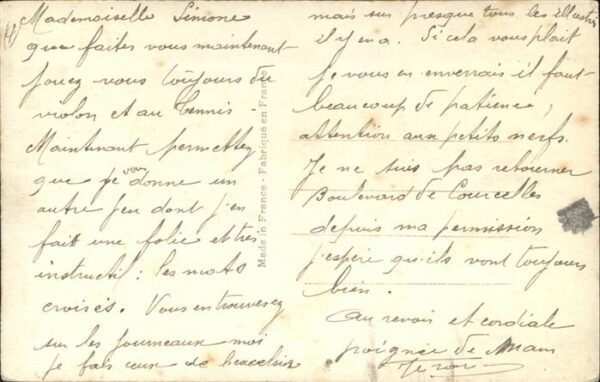 Mademoiselle Simone
que faites vous maintenant
jouez vous toujours du
violon et au tennis
Maintenant permettez
que je vous donne un
autre jeu dont j'en
fait une folie et très
instructif : les mots
croisés. Vous en trouverez
sur les journeaux moi
je fais ceux de l'excelsior
Made in France - Fabriqué en France
mais sur presque tous les illustrés
il y en a. Si cela vous plait
je vous en enverrais il faut
beaucoup de patience,
attention aux petits nerfs.
Je ne suis pas retourner
Boulevard de Courcelles
depuis ma permission
j'espère qu'ils vont toujours
bien.
Au revoir et cordiale
poignée de main